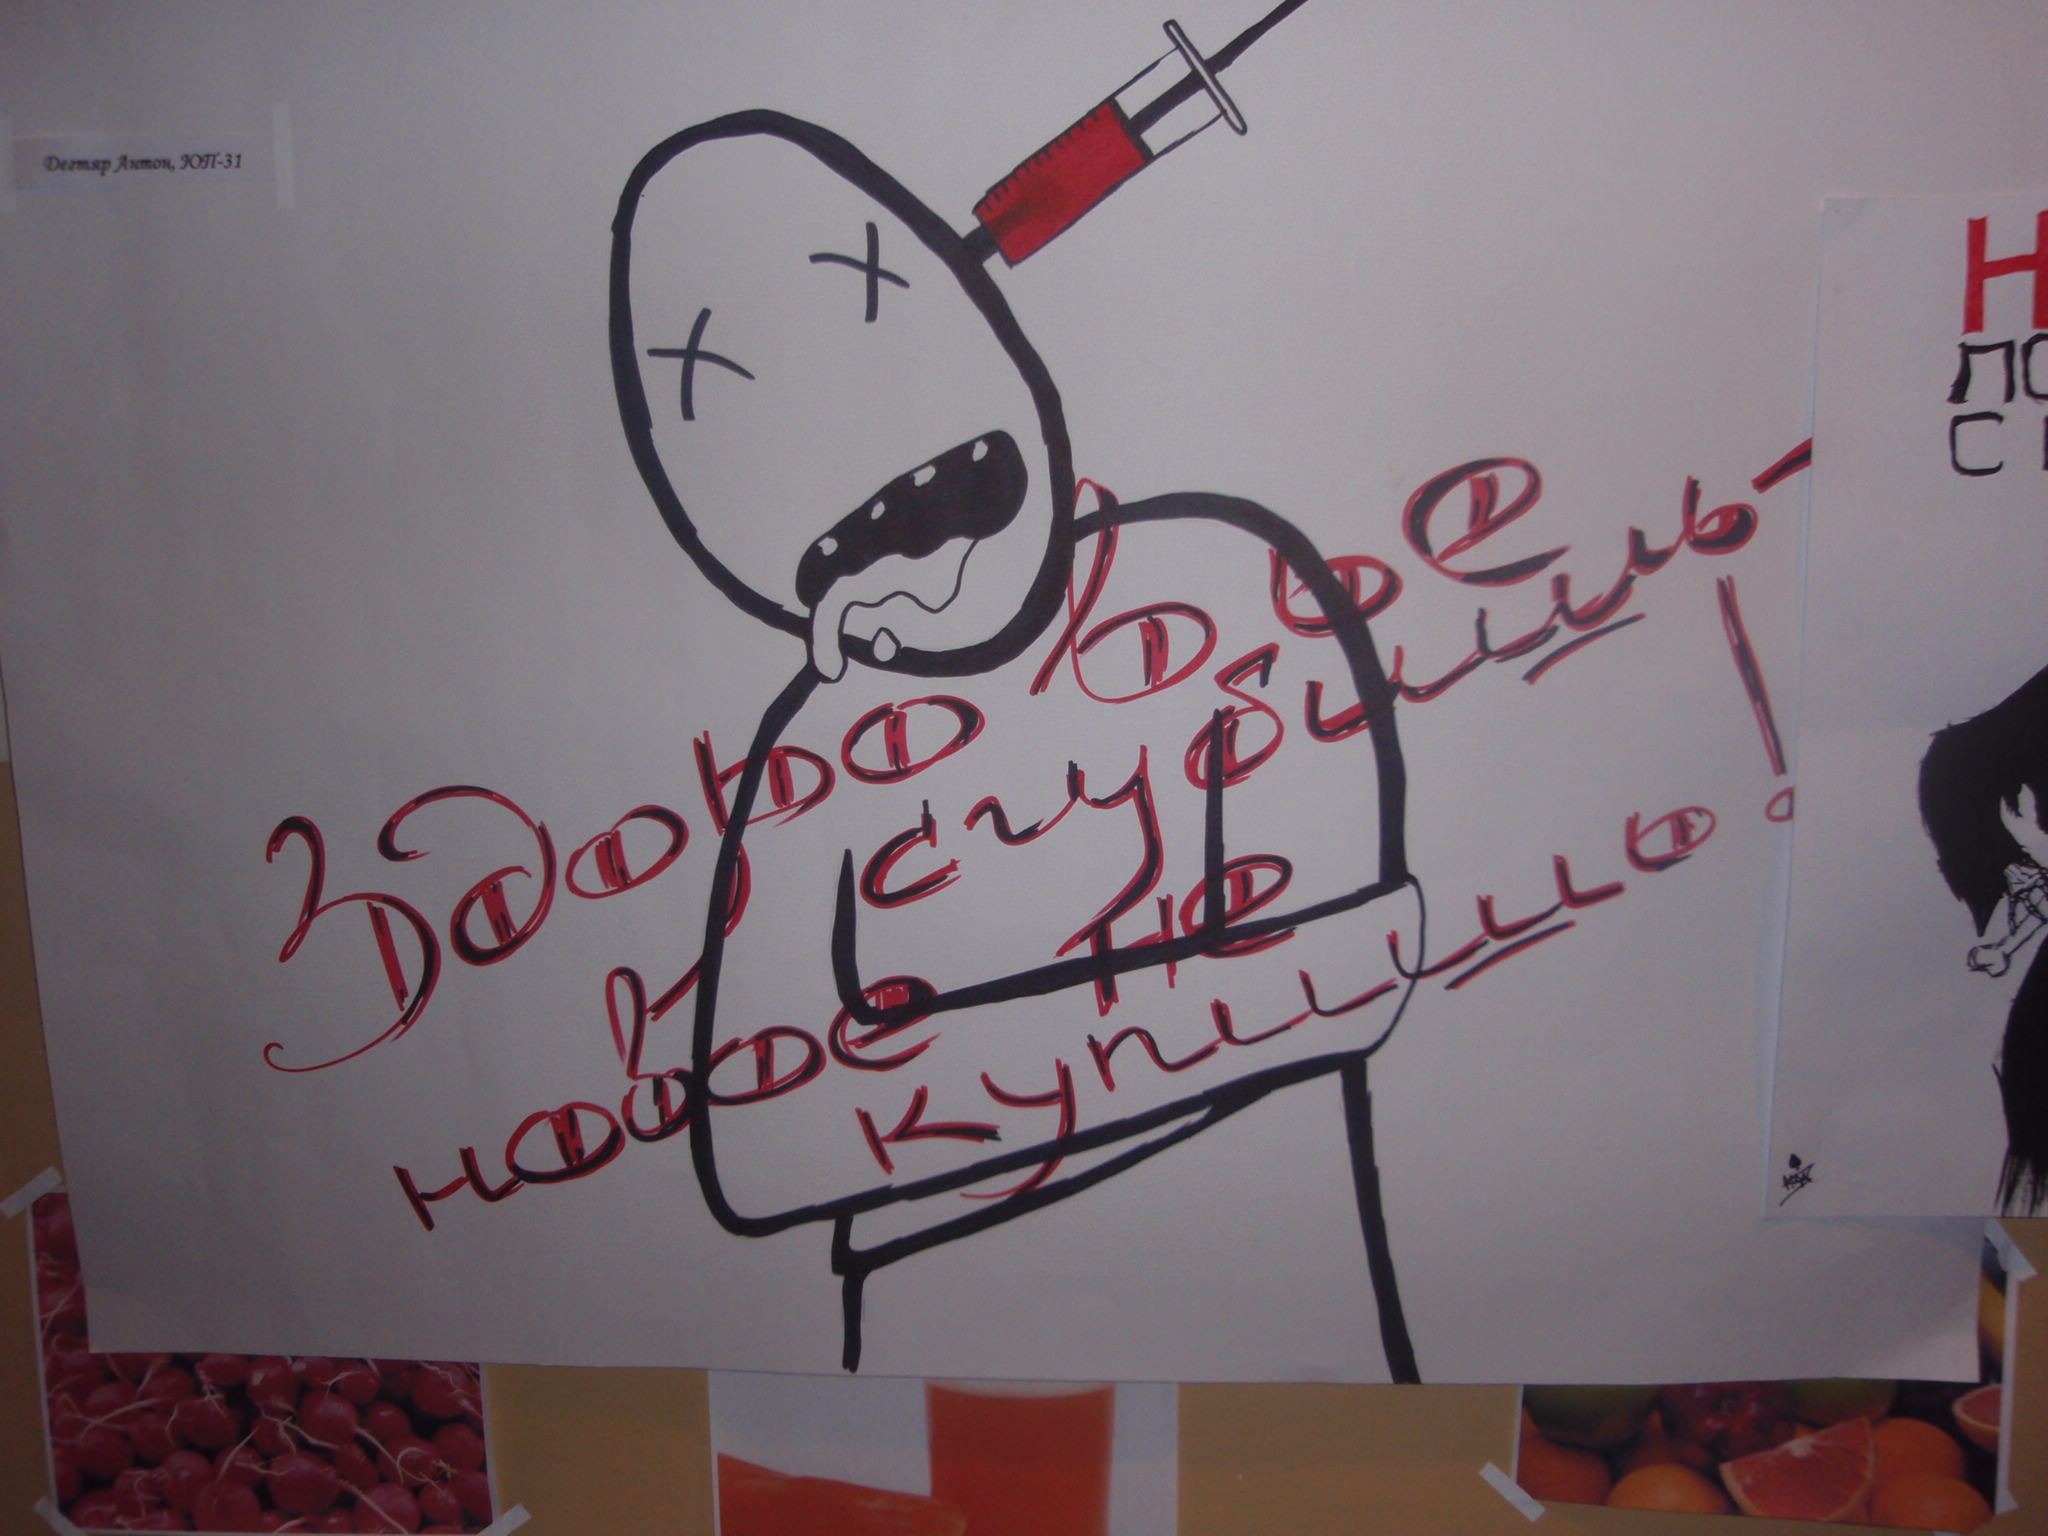 Дегтяр Антон, ЮП-31
Здоровье
сгубишь -
новое не
купишь!